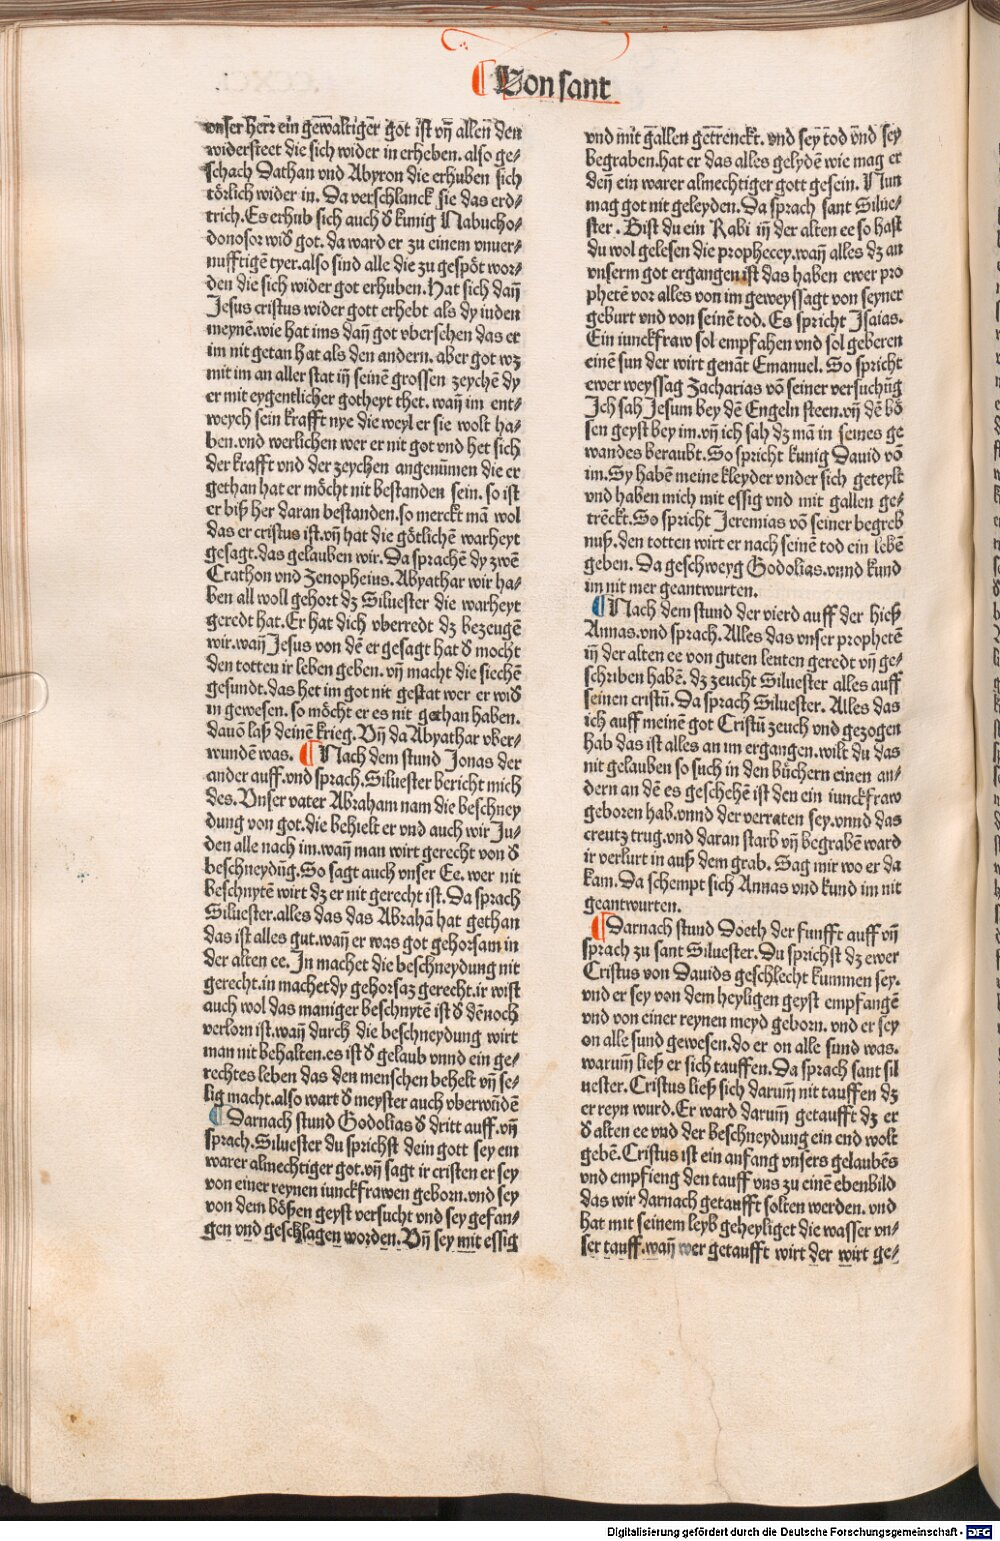 ¶ Von sant
vnser herr ein gewaltiger got ist vñ allen den
widersteet die sich wider in erheben. also ge⸗
schach Dathan vnd Abyron die erhuben sich
törlich wider in. Da verschlanck sie das erd⸗
trich. Es erhub sich auch d̕ kunig Nabucho⸗
donosor wid̕ got. da ward er zu einem vnuer⸗
nufftigē tyer. also sind alle die zu gespöt wor⸗
den die sich wider got erhuben. Hat sich dañ
Jesus cristus wider gott erhebt als dy iuden
meynē. wie hat ims dañ got vbersehen das er
im nit getan hat als den andern. aber got wz
mit im an aller stat iñ seinē grossen zeychē dy
er mit eygentlicher gotheyt thet. wañ im ent⸗
weych sein krafft nye die weyl er sie wolt ha⸗
ben. vnd werlichen wer er nit got vnd het sich
der krafft vnd der zeychen angenūmen die er
gethan hat er möcht nit bestanden sein. so ist
er biß her daran bestanden. so merckt mā wol
das er cristus ist. vñ hat die götlichē warheyt
gesagt. das gelauben wir. Da sprachē dy zwē
Crathon vnd Zenopheius. Abyathar wir ha⸗
ben all woll gehort dz Siluester die warheyt
geredt hat. Er hat dich vberredt dz bezeugē
wir. wañ Jesus von dē er gesagt hat d̕ mocht
den totten ir leben geben. vñ macht die siechē
gesundt. das het im got nit gestat wer er wid̕
in gewesen. so möcht er es nit gethan haben.
dauō laß deinē krieg. Vñ da Abyathar vber⸗
wundē was. ¶ Nach dem stund Jonas der
ander auff. vnd sprach. Siluester bericht mich
des. Vnser vater Abraham nam die beschney
dung von got. die behielt er vnd auch wir Ju⸗
den alle nach im. wañ man wirt gerecht von d̕
beschneydūg. So sagt auch vnser Ee. wer nit
beschnytē wirt dz er nit gerecht ist. Da sprach
Siluester. alles das das Abrahā hat gethan
das ist alles gut. wañ er was got gehorsam in
der alten ee. In machet die beschneydung nit
gerecht. in machet dy gehorsaz gerecht. ir wist
auch wol das maniger beschnytē ist d̕ dēnoch
verlorn ist. wañ durch die beschneydung wirt
man nit behalten. es ist d̕ gelaub vnnd ein ge⸗
rechtes leben das den menschen behelt vñ se⸗
lig macht. also wart d̕ meyster auch vberwūdē
¶ Darnach stund Godolias d̕ dritt auff. vñ
sprach. Siluester du sprichst dein gott sey ein
warer almechtiger got. vñ sagt ir cristen er sey
von einer reynen iunckfrawen geborn. vnd sey
von dem bößen geyst versucht vnd sey gefan⸗
gen vnd geschlagen worden. Vñ sey mit essig
vnd mit gallen getrenckt. vnd sey tod vnd sey
begraben. hat er das alles gelydē wie mag er
deñ ein warer almechtiger gott gesein. Nun
mag got nit geleyden. Da sprach sant Silue⸗
ster. Bist du ein Rabi iñ der alten ee so hast
du wol gelesen die prophecey. wañ alles dz an
vnserm got ergangen ist das haben ewer pro
phetē vor alles von im geweyssagt von seyner
geburt vnd von seinē tod. Es spricht Isaias.
Ein iunckfraw sol empfahen vnd sol geberen
einē sun der wirt genāt Emanuel. So spricht
ewer weyssag Zacharias vō seiner versuchūg
Ich sah Jesum bey dē Engeln steen. vñ dē bö
sen geyst bey im. vñ ich sah dz mā in seines ge
wandes beraubt. So spricht kunig Dauid vō
im. Sy habē meine kleyder vnder sich geteylt
vnd haben mich mit essig vnd mit gallen ge⸗
trēckt. So spricht Jeremias vō seiner begreb
nuß. den totten wirt er nach seinē tod ein lebē
geben. Da geschweyg Godolias. vnnd kund
im nit mer geantwurten.
¶ Nach dem stund der vierd auff der hieß
Annas. vnd sprach. Alles das vnser prophetē
iñ der alten ee von guten leuten geredt vñ ge⸗
schriben habē. dz zeucht Siluester alles auff
seinen cristū. Da sprach Siluester. Alles das
ich auff meinē got Cristū zeuch vnd gezogen
hab das ist alles an im ergangen. wilt du das
nit gelauben so such in den büchern einen an⸗
dern an dē es geschehē ist den ein iunckfraw
geboren hab. vnnd der verraten sey. vnnd das
creutz trug. vnd daran starb vñ begrabē ward
ir verlurt in auß dem grab. Sag mir wo er da
kam. Da schempt sich Annas vnd kund im nit
geantwurten.
¶ Darnach stund Doeth der funfft auff vñ
sprach zu sant Siluester. Du sprichst dz ewer
Cristus von Dauids geschlecht kummen sey.
vnd er sey von dem heyligen geyst empfangē
vnd von einer reynen meyd geborn. vnd er sey
on alle sund gewesen. do er on alle sund was.
warum̄ ließ er sich tauffen. Da sprach sant sil
uester. Cristus ließ sich darum̄ nit tauffen dz
er reyn wurd. Er ward darum̄ getaufft dz er
d̕ alten ee vnd der beschneydung ein end wolt
gebē. Cristus ist ein anfang vnsers gelaubēs
vnd empfieng den tauff vns zu einē ebenbild
das wir darnach getaufft solten werden. vnd
hat mit seinem leyb geheyliget die wasser vn⸗
ser tauff. wañ wer getaufft wirt der wirt ge⸗
Digitalisierung gefördert durch die Deutsche Forschungsgemeinschaft - DFG